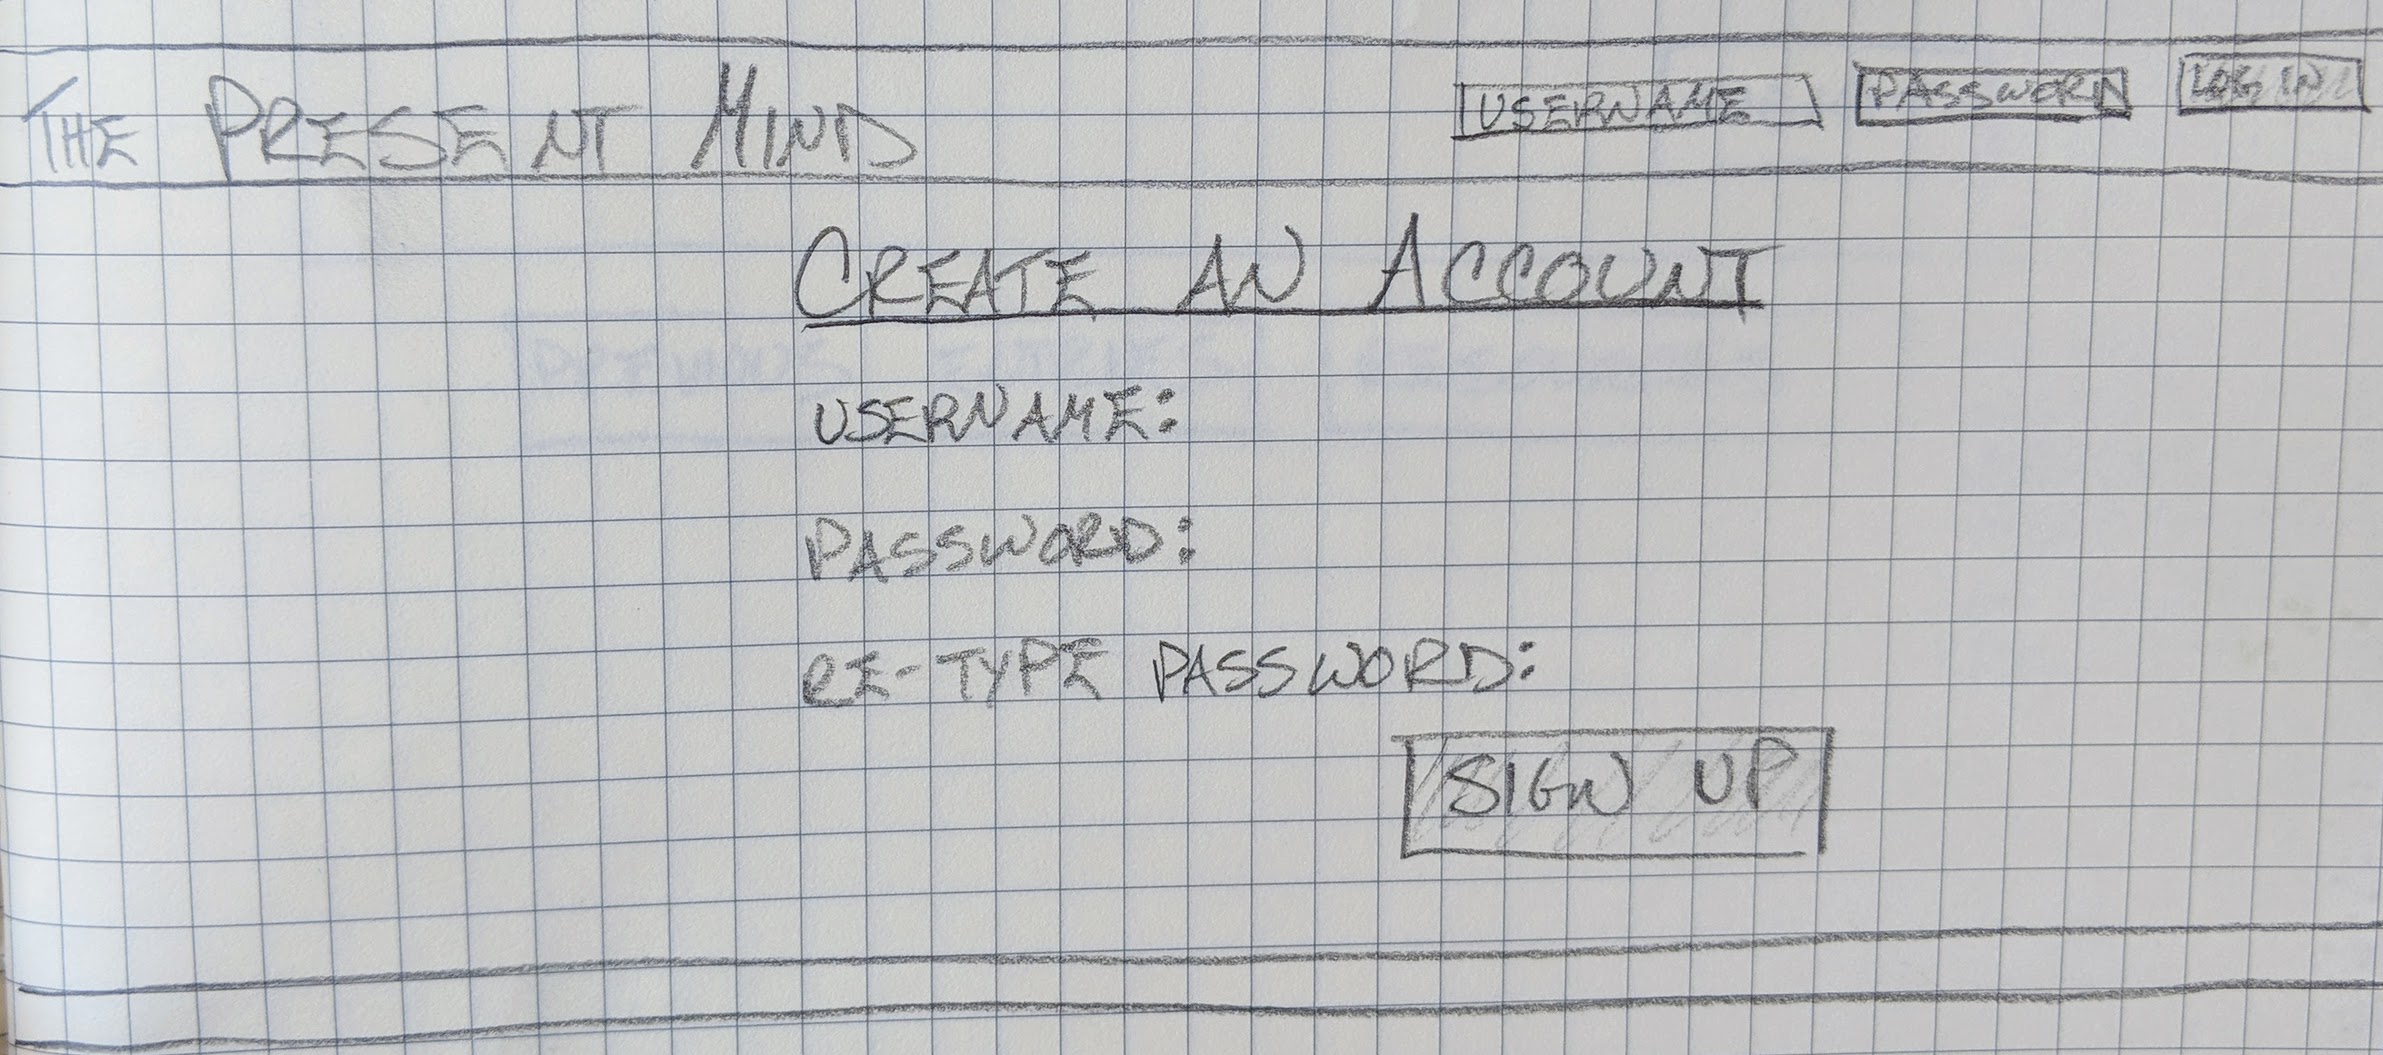 THE PRESENT MIND USERNAME PASSWORD LOG IN
CREATE AN ACCOUNT
USERNAME:
PASSWORD:
RE-TYPE PASSWORD:
SIGN UP